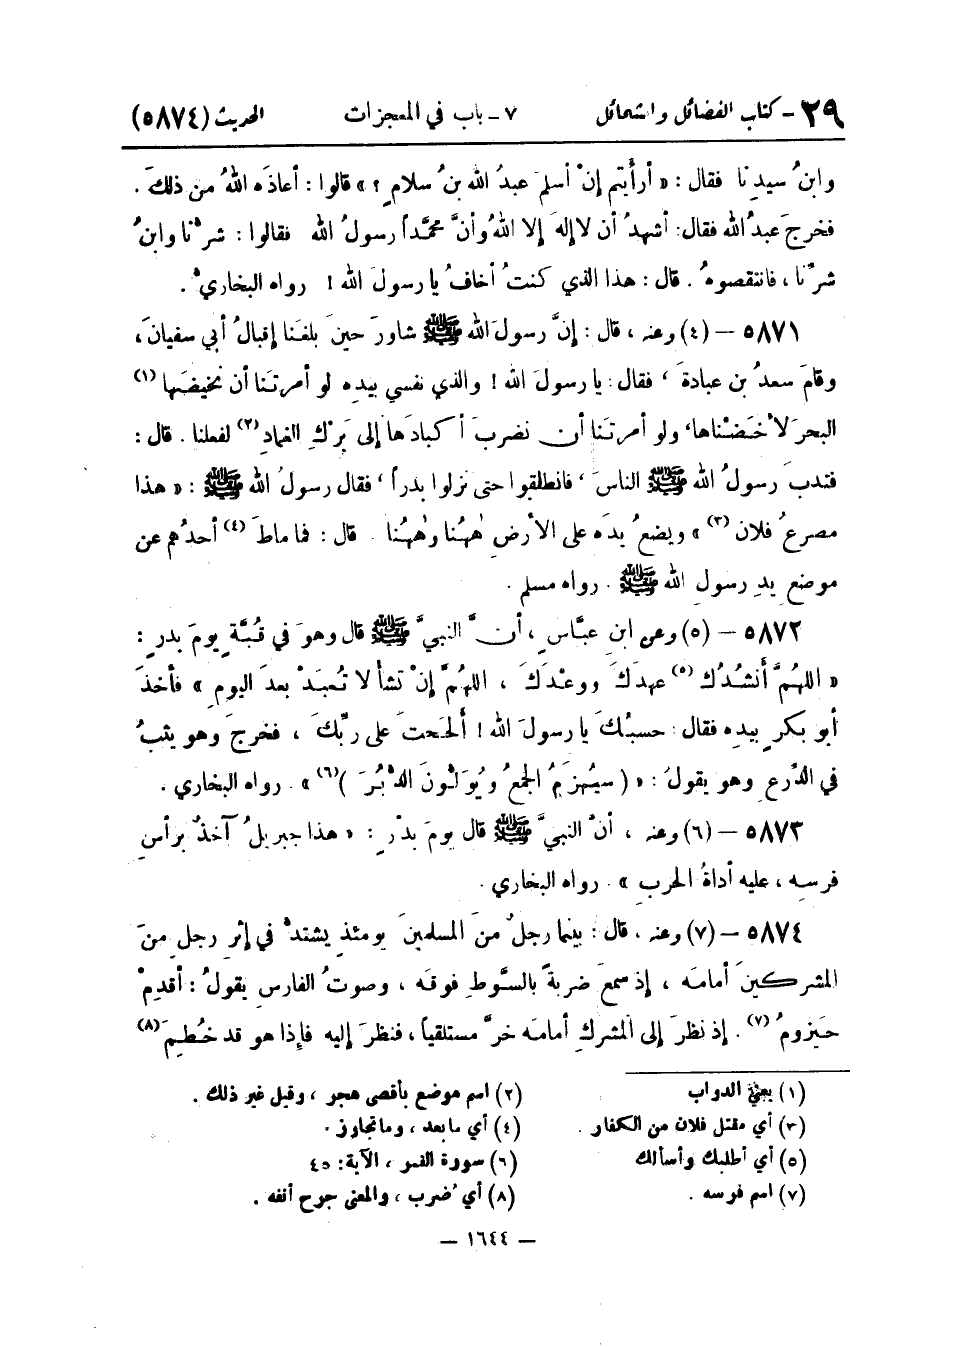 ٢٩ - كتاب الفضائل والشمائل ٧ - باب في المعجزات الحديث (٥٨٧٤)
وابنُ سيدِنا فقال : « أرأيتم إنْ أسلمَ عبدُ الله بنُ سلامٍ ؟ » قالوا : أعاذَه اللهُ من ذلكَ .
فخرجَ عبدُ الله فقال: أشهدُ أن لا إلهَ إلا اللهُ وأنَّ محمَّداً رسولُ الله فقالوا : شرُّنا وابنُ
شرِّنا ، فانتقصوهُ . قال : هذا الذي كنتُ أخافُ يا رسولَ الله ! رواه البخاريّ .
٥٨٧١ – (٤) وعنه ، قال : إنَّ رسولَ الله ﷺ شاورَ حينَ بلغَنا إقبالُ أبي سفيانَ ،
وقامَ سعدُ بن عبادةَ ، فقال : يا رسولَ الله ! والذي نفسي بيدِه لو أمرتَنا أن نُخيضَها (١)
البحرَ لأخَضْناها، ولو أمرتَنا أن نضربَ أكبادَها إلى بَرْكِ الغمادِ (٢) لفعلنا . قال :
فندبَ رسولُ الله ﷺ الناسَ ، فانطلقوا حتى نزلوا بدراً ، فقال رسولُ الله ﷺ : « هذا
مصرعُ فلان (٣) » ويضعُ يدَه على الأرضِ هٰهُنا وهٰهُنا . قال : فما ماطَ (٤) أحدُهم عن
موضعِ يدِ رسولِ الله ﷺ . رواه مسلم .
٥٨٧٢ – (٥) وعن ابنِ عبَّاسٍ ، أنَّ النبيَّ ﷺ قال وهوَ في قُبَّةٍ يومَ بدرٍ :
« اللهُمَّ أَنشُدُك (٥) عهدَكَ ووعْدَكَ ، اللهُمَّ إنْ تشأ لا تُعبَدْ بعدَ اليومِ » فأخذَ
أبو بكرٍ بيدِه فقال : حسبُكَ يا رسولَ الله ! أَلحَحتَ على ربِّكَ ، فخرجَ وهو يثبُ
في الدِّرعِ وهو يقولُ : « (سيُهزَمُ الجمعُ ويُوَلُّونَ الدُّبُرَ ) (٦) » . رواه البخاري .
٥٨٧٣ – (٦) وعنه ، أنَّ النبيَّ ﷺ قال يومَ بدْرٍ : « هذا جبريلُ آخذٌ برأسِ
فرسِه ، عليه أداةُ الحربِ » . رواه البخاري .
٥٨٧٤ – (٧) وعنه ، قال : بينما رجلٌ منَ المسلمينَ يومئذٍ يشتدُّ في إثرِ رجلٍ منَ
المشركينَ أمامَه ، إذ سمعَ ضربةً بالسَّوطِ فوقَه ، وصوتُ الفارسِ يقولُ : أقدِمْ
حَيزومُ (٧) . إذ نظرَ إلى المشركِ أمامَه خرَّ مستلقياً ، فنظرَ إليه فإذا هو قد خُطِمَ (٨)
(١) يعني الدواب (٢) اسم موضع بأقصى هجر ، وقيل غير ذلك .
(٣) أي مقتل فلان من الكفار . (٤) أي ما بعد ، وما تجاوز .
(٥) أي أطلبك وأسألك (٦) سورة القمر ، الآية : ٤٥
(٧) اسم فرسه . (٨) أي ضرب ، والمعنى جرح أنفه .
– ١٦٤٤ –